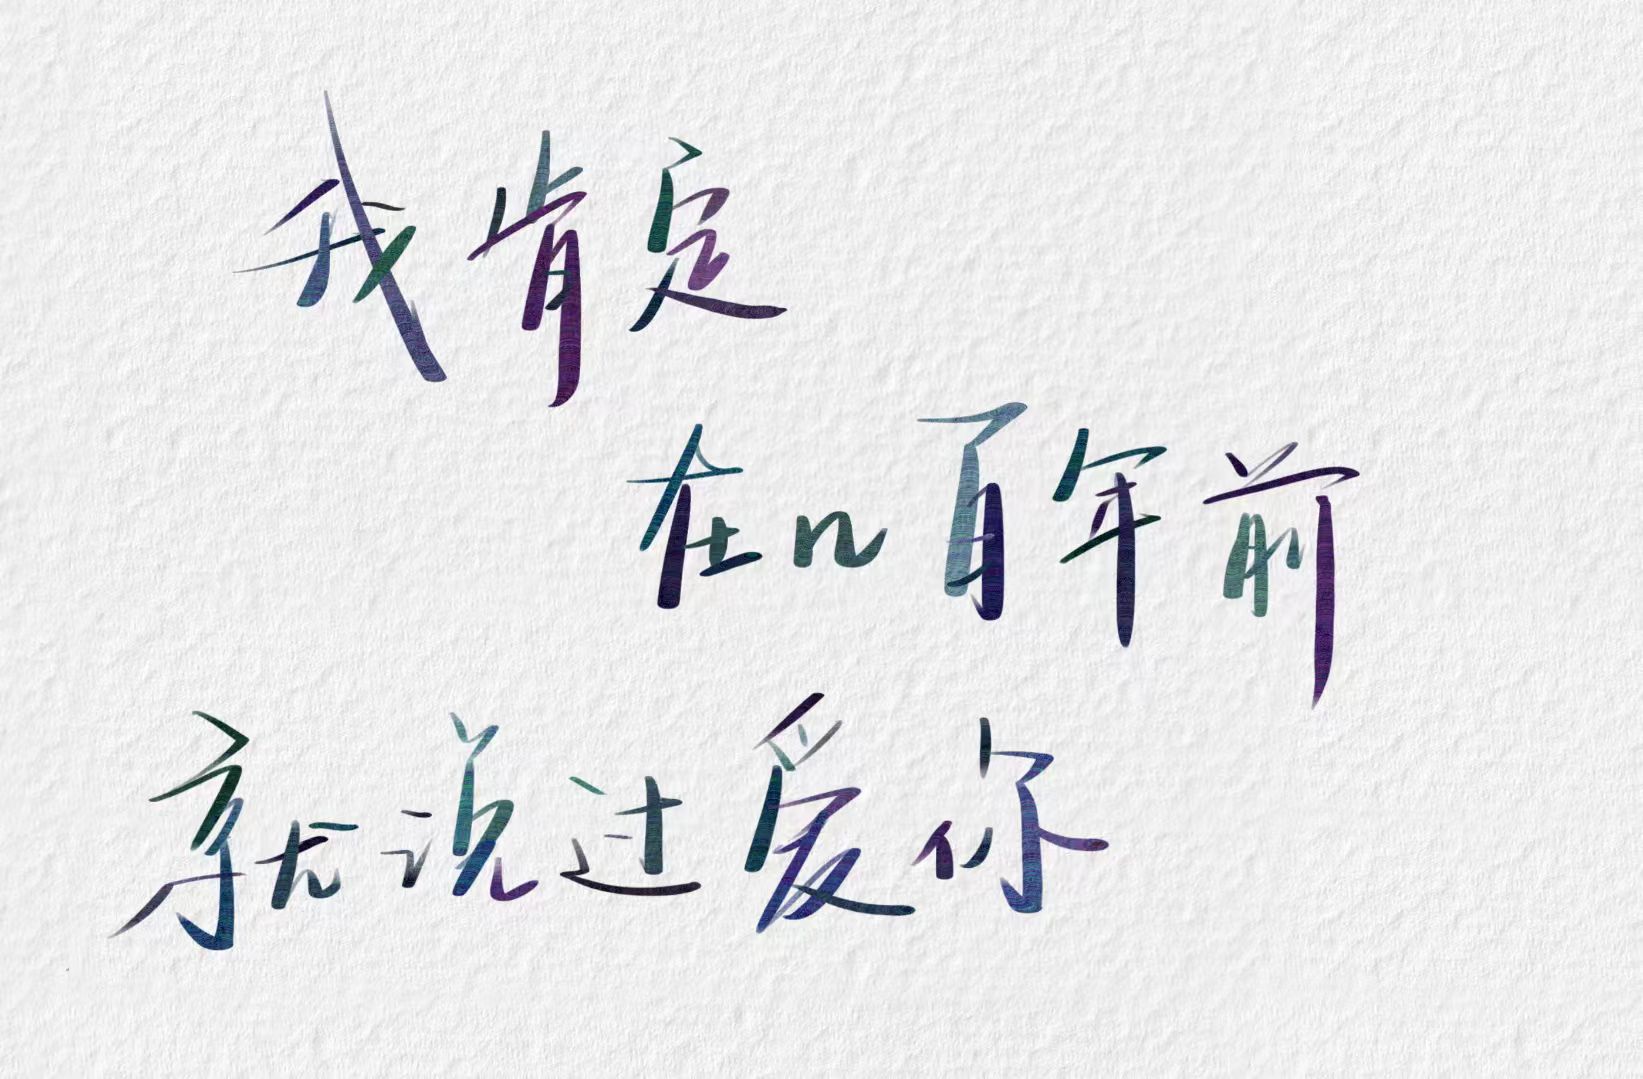 我肯定
在n百年前
就说过爱你